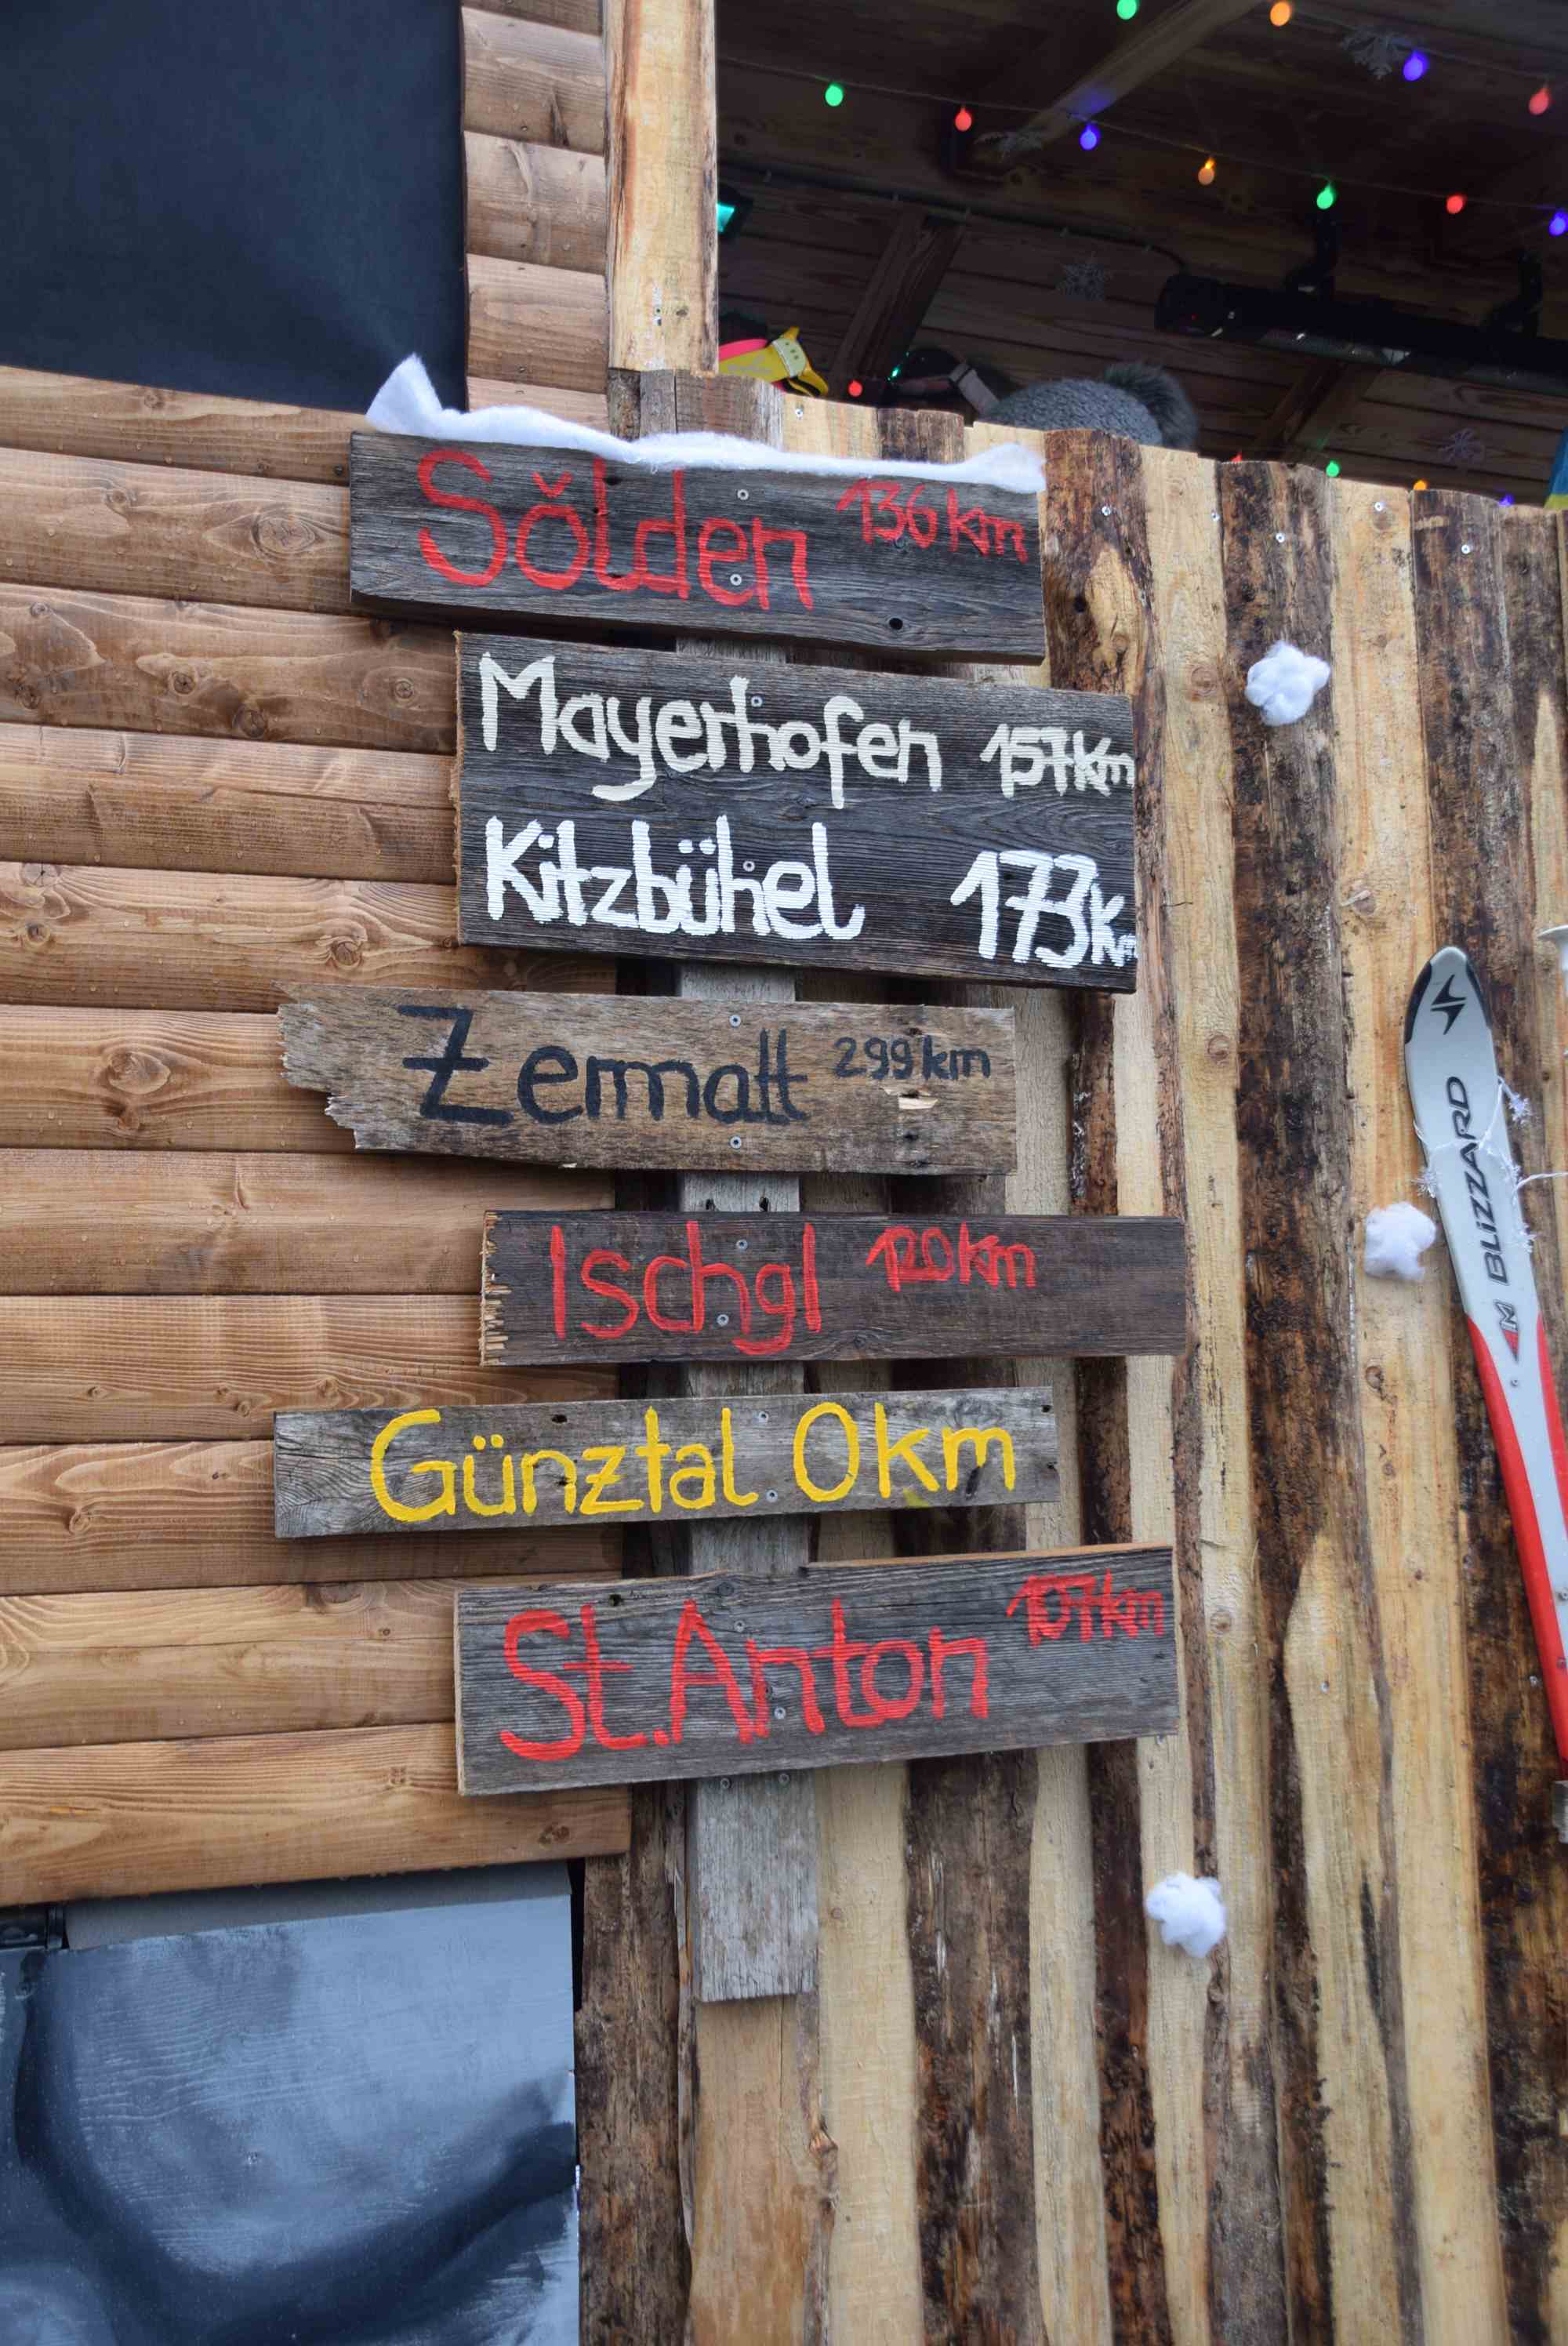 Sölden 136 km
Mayerhofen 157 Km
Kitzbühel 173 Km
Zermatt 299 km
Ischgl 120 km
Günztal 0 km
St. Anton 107 km
BLiZZARD